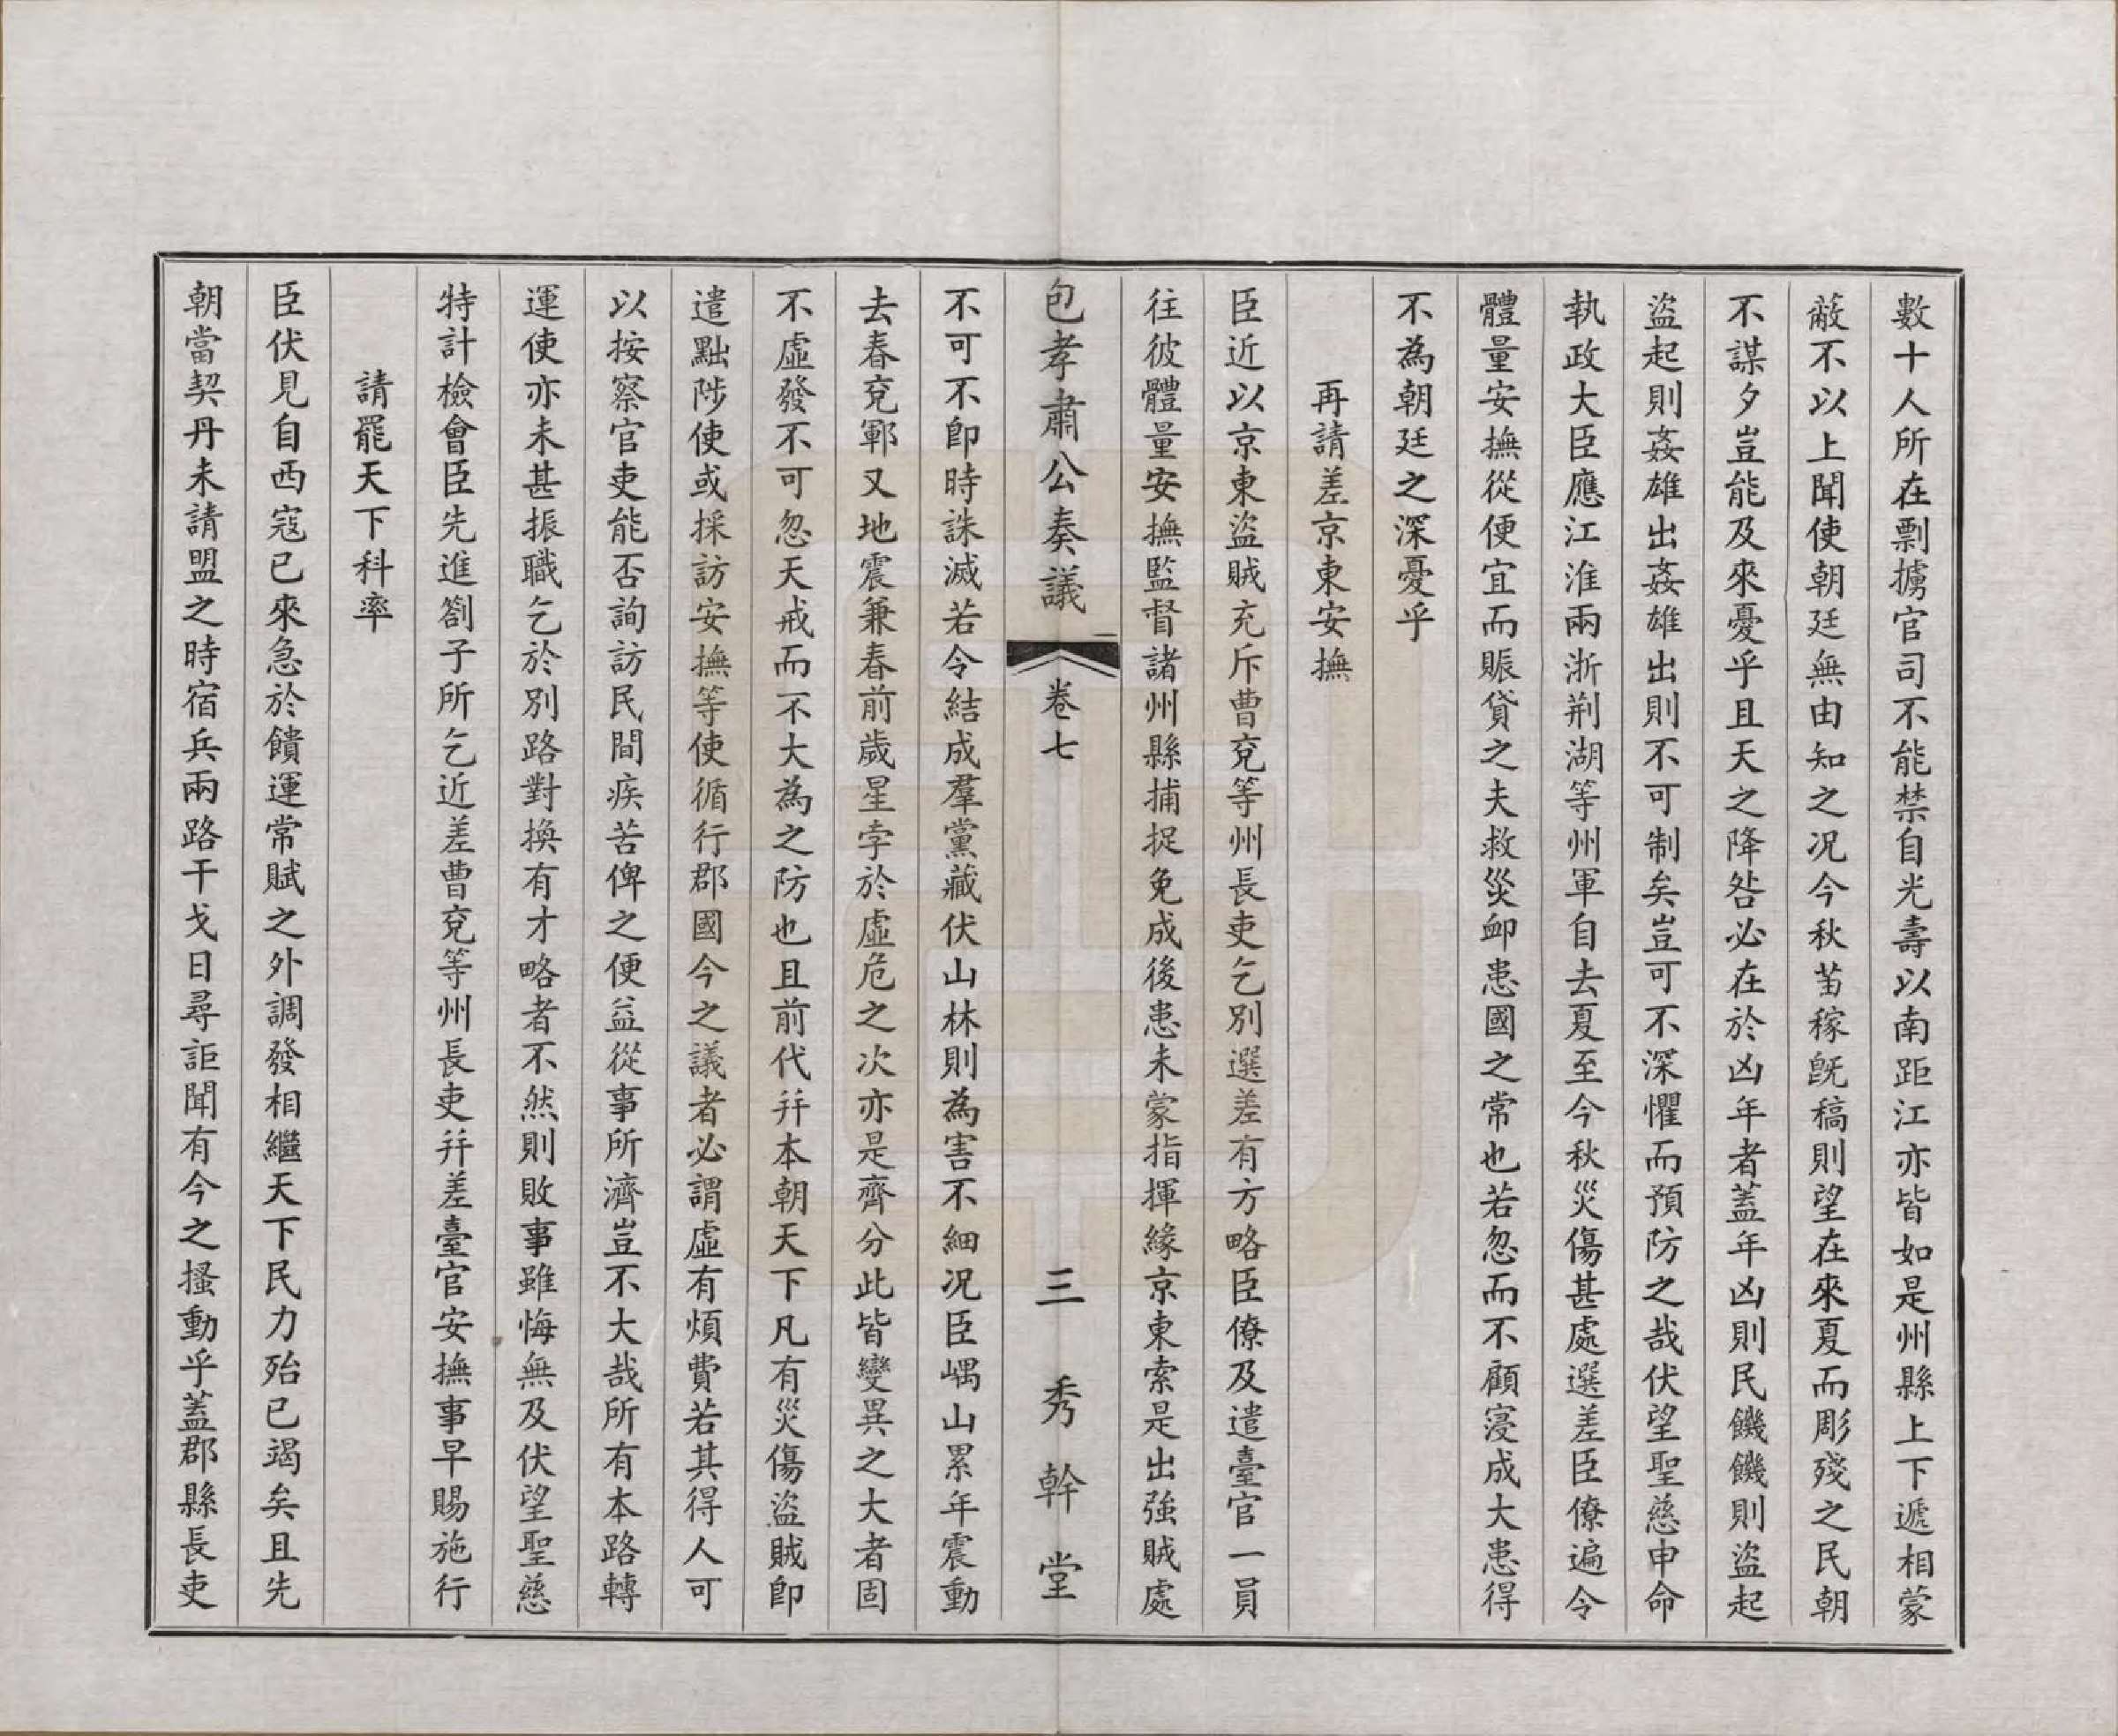 數十人所在剽擄官司不能禁自光壽以南距江亦皆如是州縣上下遞相蒙
蔽不以上聞使朝廷無由知之况今秋苗稼旣稿則望在來夏而彫殘之民朝
不謀夕豈能及來憂乎且天之降咎必在於凶年者蓋年凶則民饑饑則盜起
盜起則姦雄出姦雄出則不可制矣豈可不深懼而預防之哉伏望聖慈申命
執政大臣應江淮兩浙荆湖等州軍自去夏至今秋災傷甚處選差臣僚遍令
體量安撫從便宜而賑貸之夫救災卹患國之常也若忽而不顧寖成大患得
不為朝廷之深憂乎
再請差京東安撫
臣近以京東盜賊充斥曹兗等州長吏乞別選差有方略臣僚及遣臺官一員
往彼體量安撫監督諸州縣捕捉免成後患未蒙指揮緣京東索是出強賊處
包孝肅公奏議
卷七
三
秀幹堂
不可不卽時誅滅若令結成羣黨藏伏山林則為害不細况臣嵎山累年震動
去春兗鄆又地震兼春前歲星孛於虛危之次亦是齊分此皆變異之大者固
不虛發不可忽天戒而不大為之防也且前代并本朝天下凡有災傷盜賊卽
遣黜陟使或採訪安撫等使循行郡國今之議者必謂虛有煩費若其得人可
以按察官吏能否詢訪民間疾苦俾之便益從事所濟豈不大哉所有本路轉
運使亦未甚振職乞於別路對換有才略者不然則敗事雖悔無及伏望聖慈
特計檢會臣先進劄子所乞近差曹兗等州長吏并差臺官安撫事早賜施行
請罷天下科率
臣伏見自西寇已來急於饋運常賦之外調發相繼天下民力殆已竭矣且先
朝當契丹未請盟之時宿兵兩路干戈日尋詎聞有今之搔動乎蓋郡縣長吏